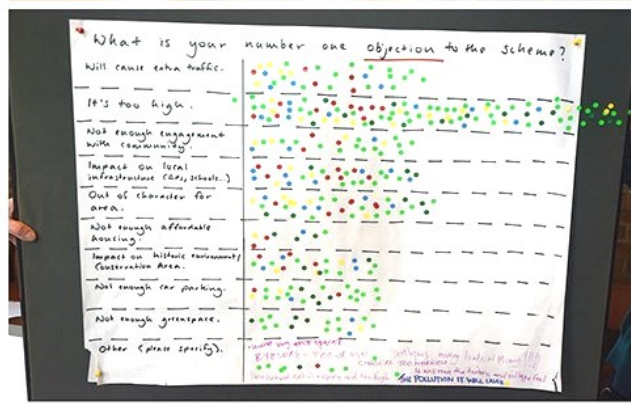 What is your number one objection to the scheme?
Will cause extra traffic.
It's too high.
Not enough engagement
with community.
Impact on local
infrastructure (GPs, schools..)
Out of character for
area.
Not enough affordable
housing.
Impact on historic environment/
Conservation Area.
Not enough car parking.
Not enough greenspace.
Other (please specify).
EYESORE
THE POLLUTION IT WILL CAUSE